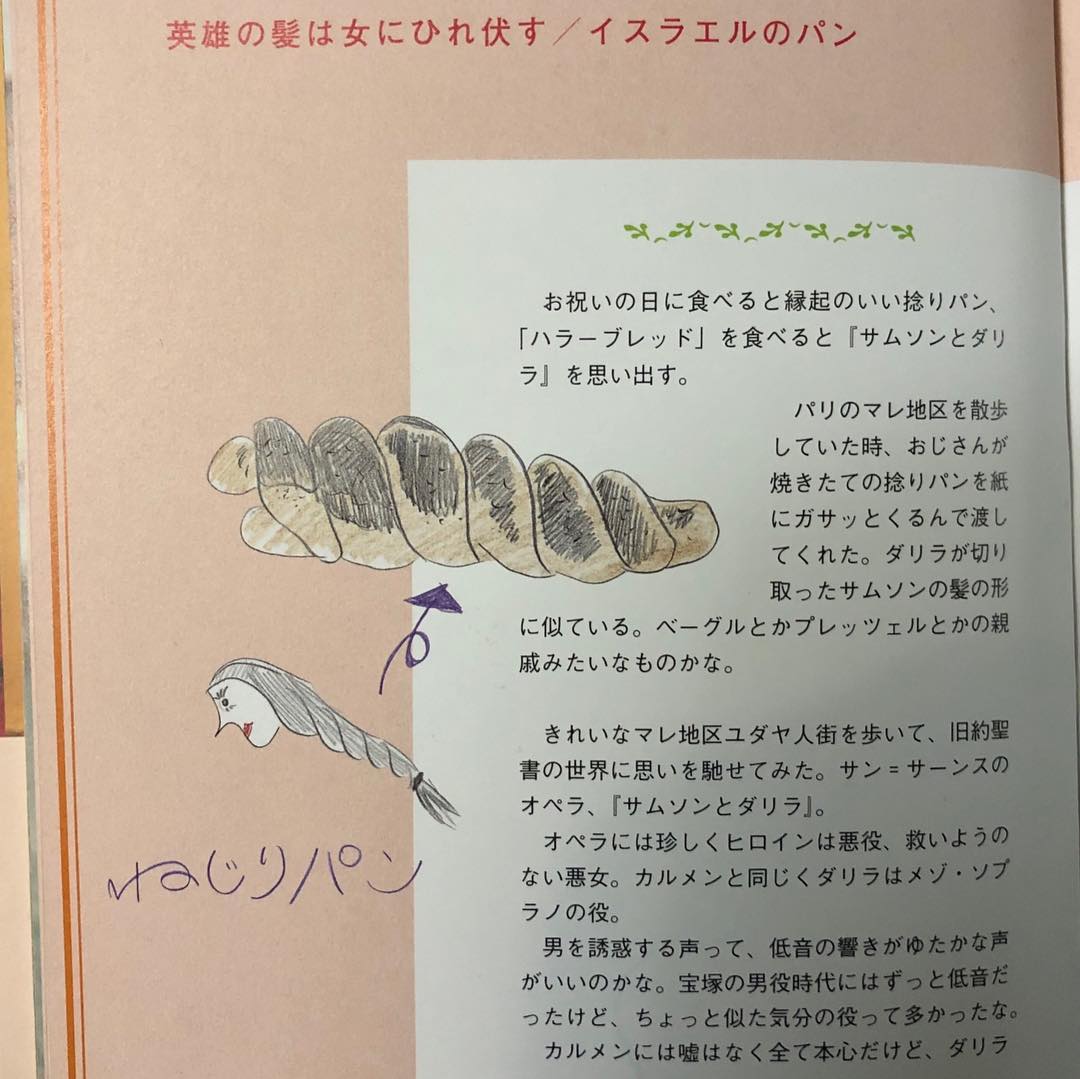 英雄の髪は女にひれ伏す／イスラエルのパン
お祝いの日に食べると縁起のいい捻りパン、
「ハラーブレッド」を食べると『サムソンとダリ
ラ』を思い出す。
パリのマレ地区を散歩
していた時、おじさんが
焼きたての捻りパンを紙
にガサッとくるんで渡し
てくれた。ダリラが切り
取ったサムソンの髪の形
に似ている。ベーグルとかプレッツェルとかの親
戚みたいなものかな。
ねじりパン
きれいなマレ地区ユダヤ人街を歩いて、旧約聖
書の世界に思いを馳せてみた。サン＝サーンスの
オペラ、『サムソンとダリラ』。
オペラには珍しくヒロインは悪役、救いようの
ない悪女。カルメンと同じくダリラはメゾ・ソプ
ラノの役。
男を誘惑する声って、低音の響きがゆたかな声
がいいのかな。宝塚の男役時代にはずっと低音だ
ったけど、ちょっと似た気分の役って多かったな。
カルメンには嘘はなく全て本心だけど、ダリラ